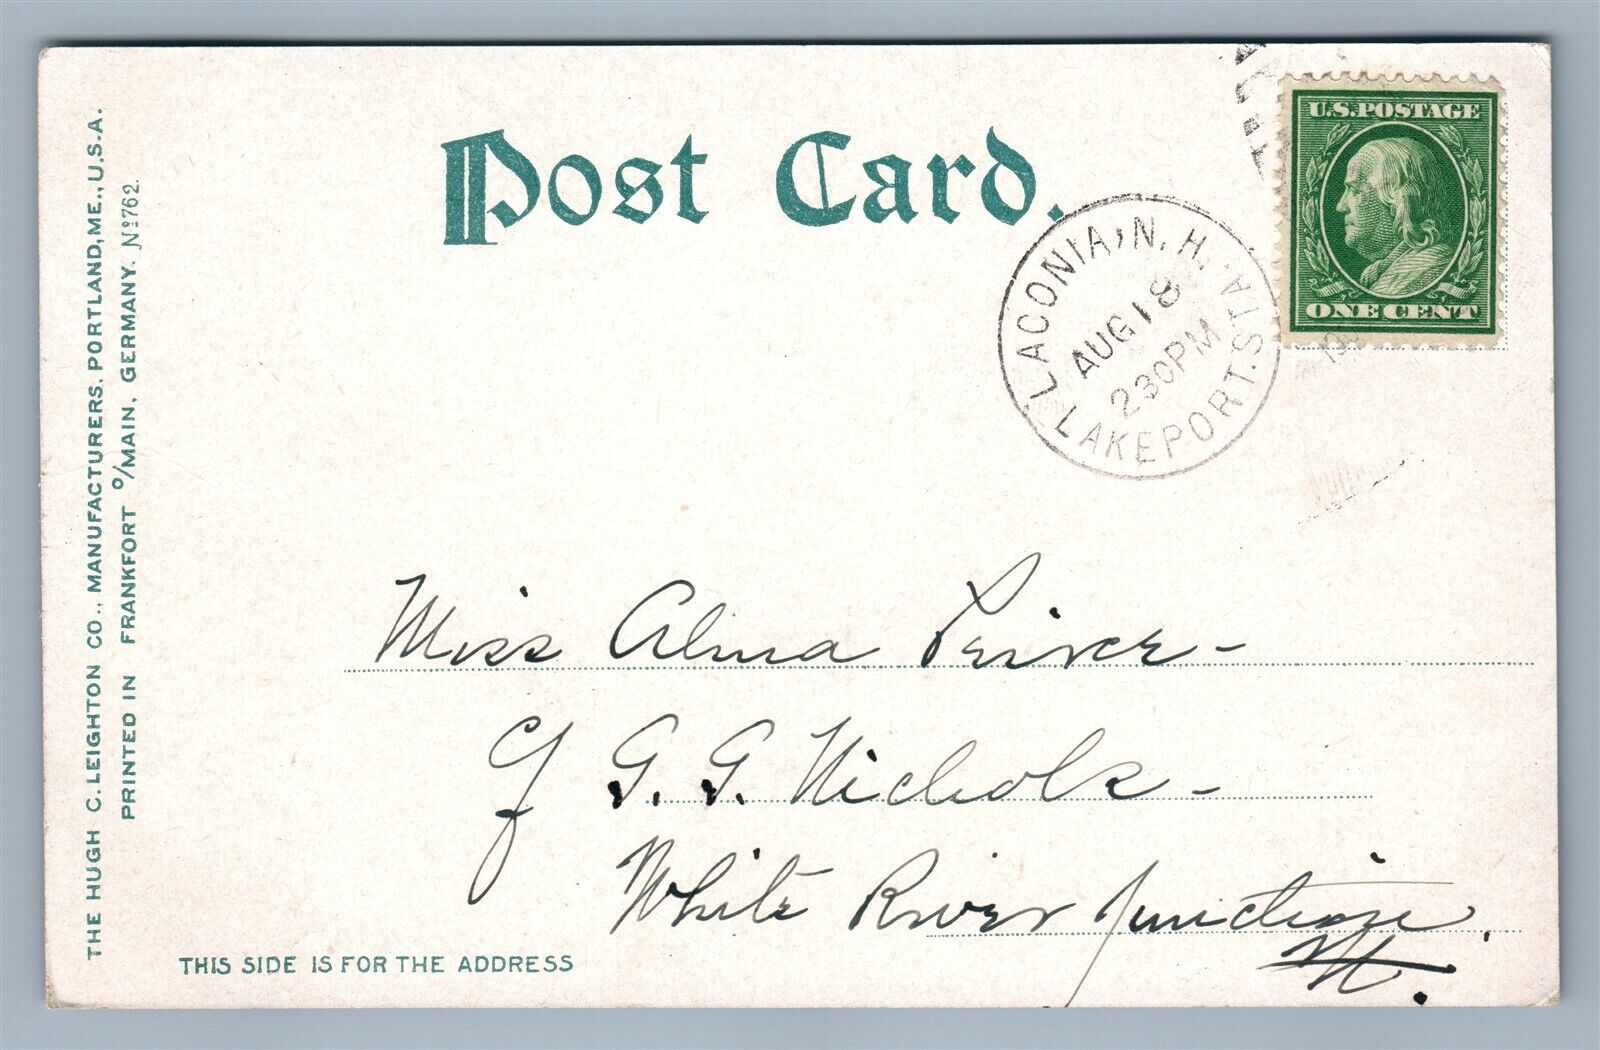 Post Card.
U.S. POSTAGE
ONE CENT
LACONIA, N.H.
AUG 18
230PM
LAKEPORT. STA.
Miss Alma
c/ G. G. Nichols -
White River Junction.
Vt.
THIS SIDE IS FOR THE ADDRESS
THE HUGH C. LEIGHTON CO., MANUFACTURERS, PORTLAND, ME., U.S.A.
PRINTED IN FRANKFORT o/MAIN, GERMANY. No 762.